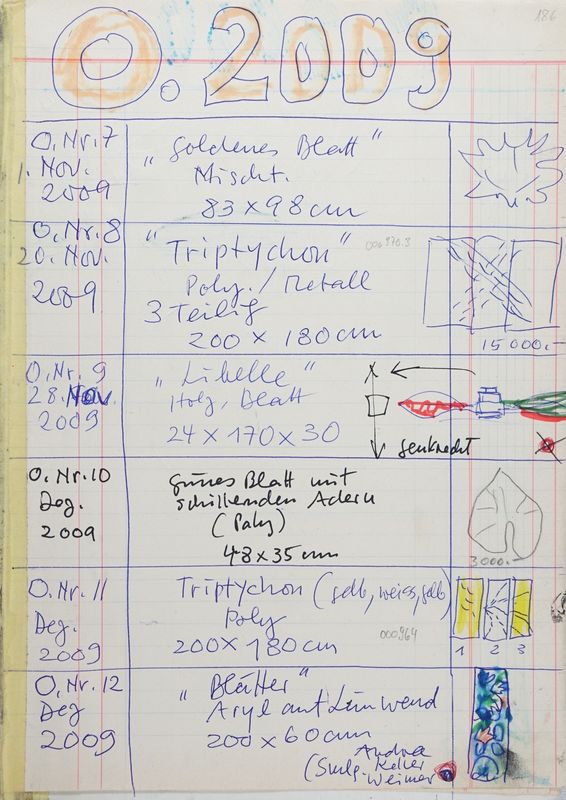 186
O. 2009
O. Nr. 7
1. Nov.
2009
"Goldenes Blatt"
Mischt.
83 x 98 cm
O. Nr. 8
20. Nov.
2009
"Triptychon"
Poly. / Metall
3 Teilig
200 x 180 cm
15000.-
O. Nr. 9
28. Nov.
2009
"Libelle"
Holz, Blatt
24 x 170 x 30
senkrecht
O. Nr. 10
Dez.
2009
grünes Blatt mit
schillernden Adern
(Poly)
48 x 35 cm
3000.-
O. Nr. 11
Dez.
2009
Triptychon (gelb, weiss, gelb)
Poly
200 x 180 cm
000964
1 2 3
O. Nr. 12
Dez
2009
"Blätter"
Acryl auf Leinwand
200 x 60 cm
Andrea
Keller
Weimer